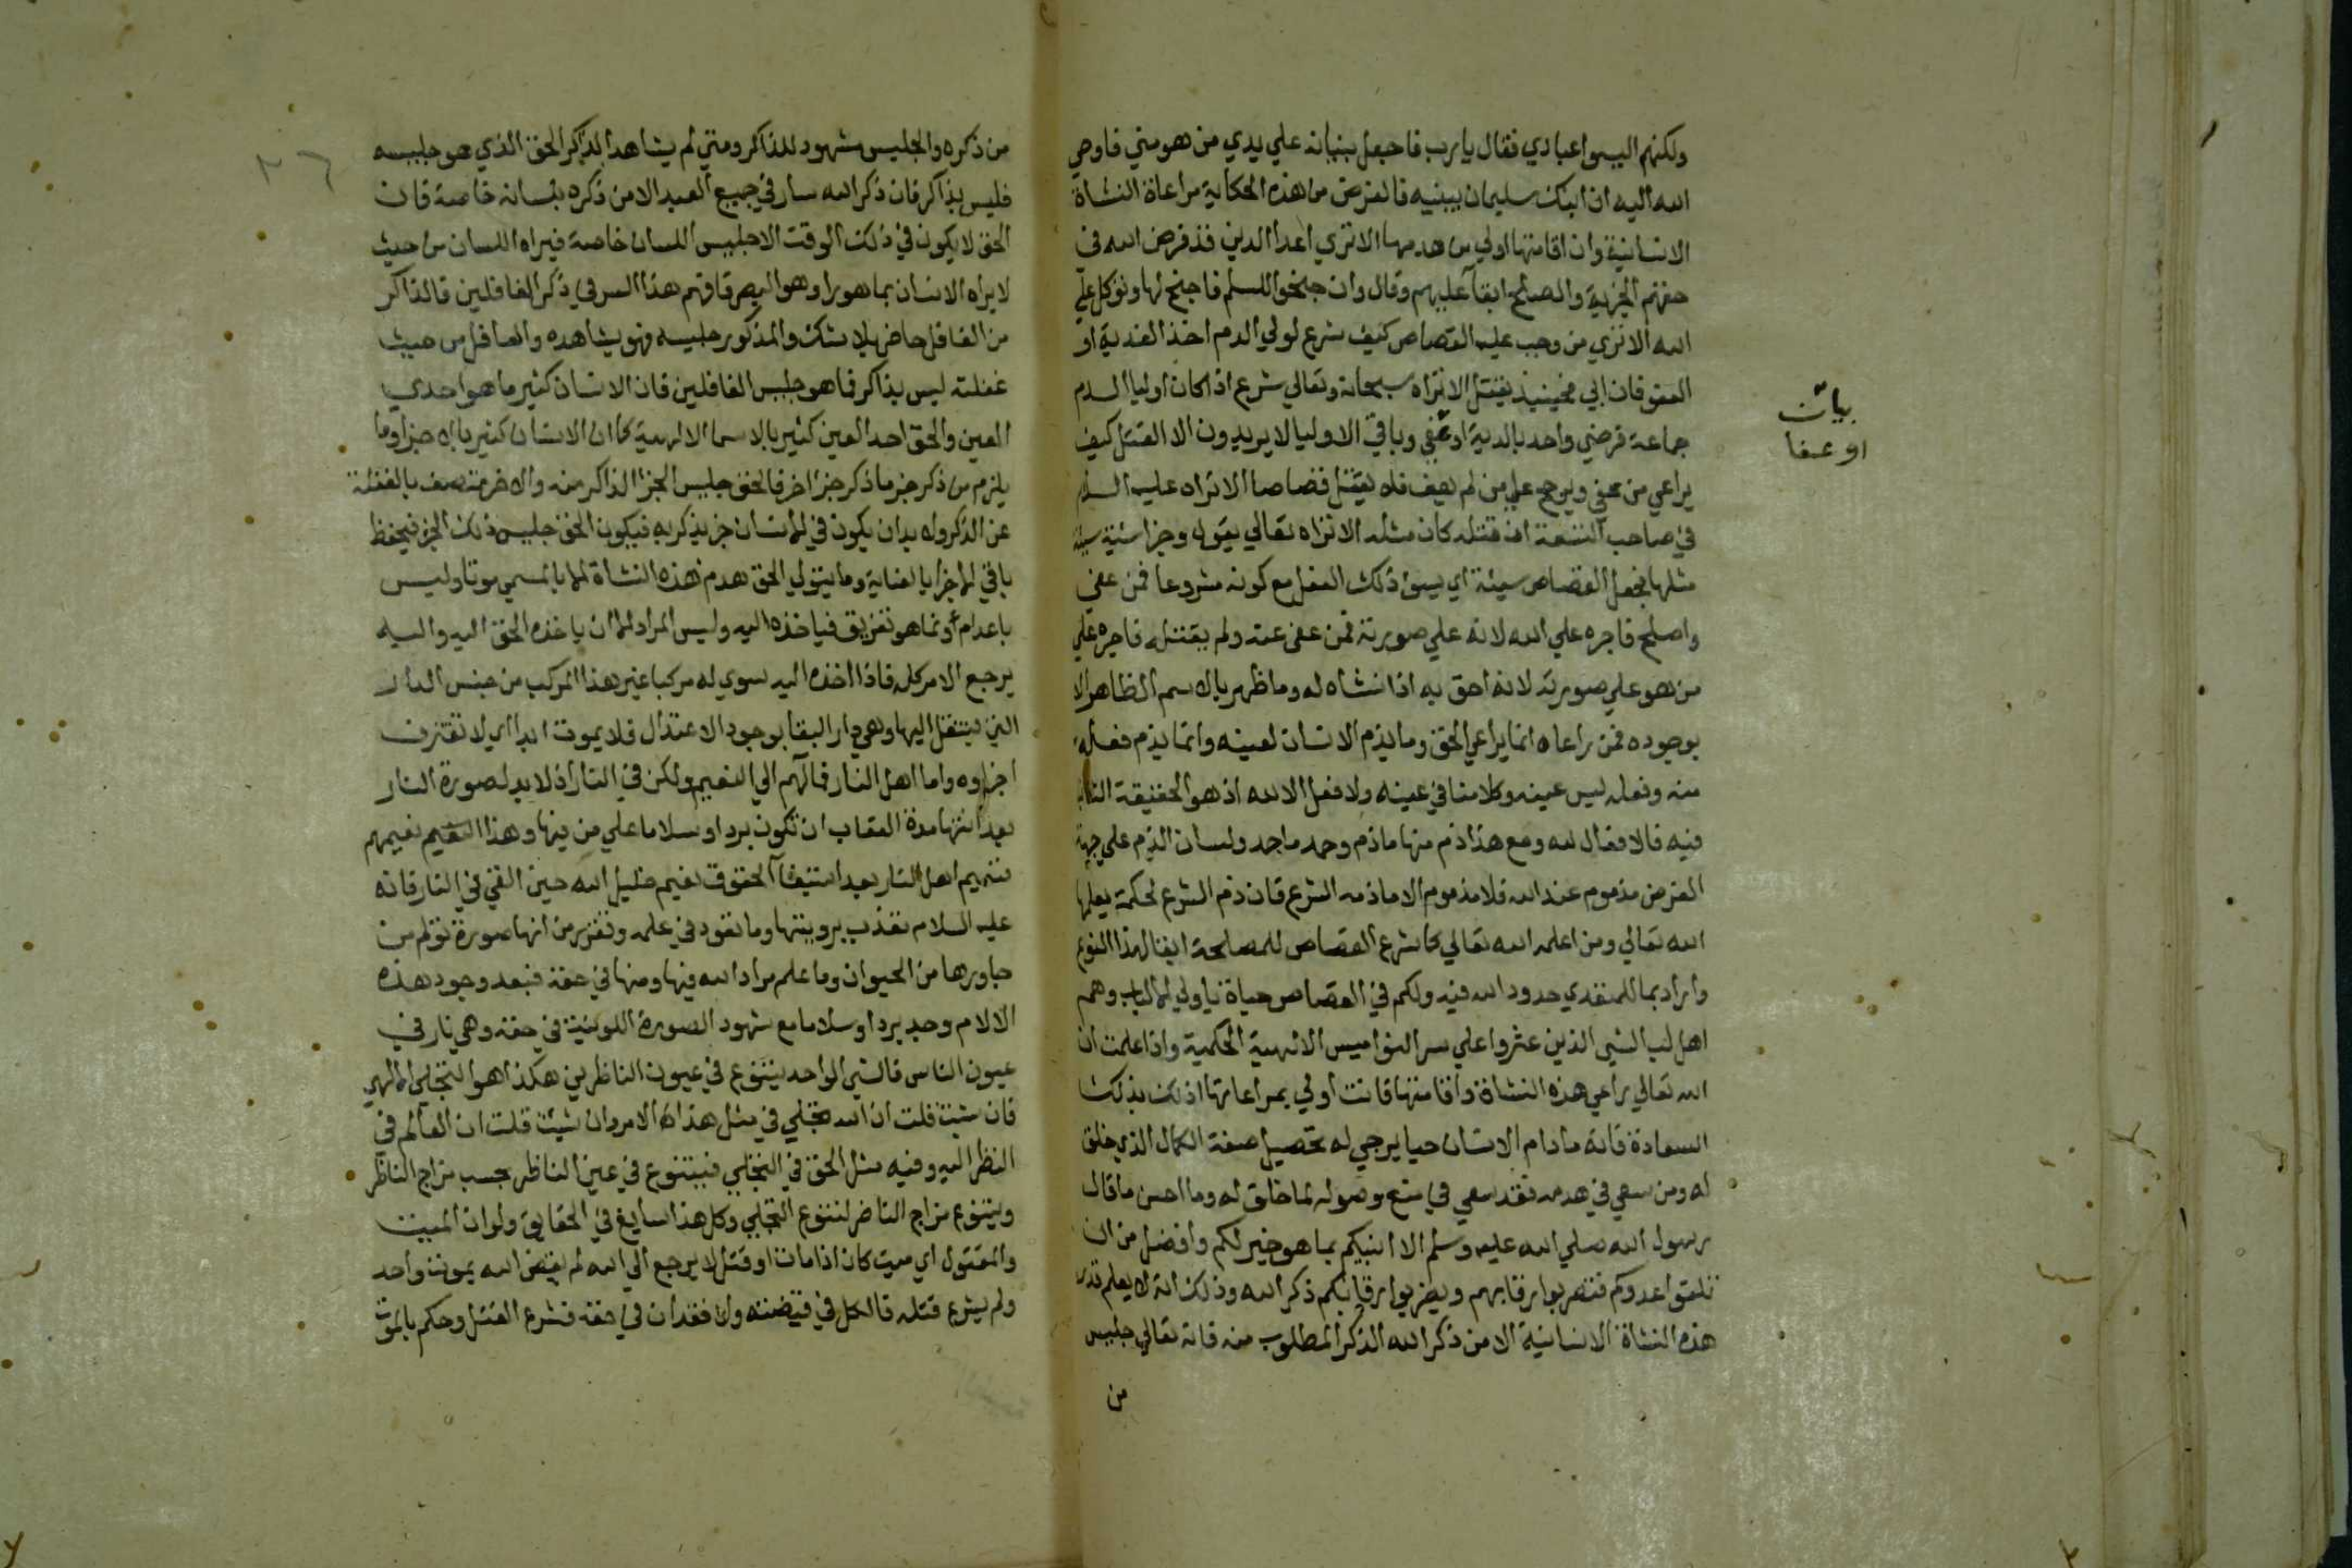 ولكنهم اليسوا عبادي فقال يا رب فاجعل بنيانه علي يدي من هو مني فاوحي
الله اليه ان ابنك سليمان يبنيه فالغرض من هذه الحكاية مراعاة النشاة
الانسانية وان اقامتها اولي من هدمها الا تري اعدا الدين قد فرض الله في
حقهم الجزية والصلح ابقآ عليهم وقال وان جنحوا للسلم فاجنح لها وتوكل علي
الله الا تري من وجب عليه القصاص كيف شرع لولي الدم اخذ الفدية او
العفو فان ابي فحينيذ يقتل الا تراه سبحانه وتعالي شرع اذا كان اوليا الدم
جماعة فرضي واحد بالدية او عفي وباقي الاوليا لا يريدون الا القتل كيف
يراعي من عفي ويرجح علي من لم يعف فلا يقتل قصاصا الا تراه عليه السلام
في صاحب النسعة ان قتله كان مثله الا تراه تعالي يقول وجزا سيئة سيئة
مثلها فجعل القصاص سيئة اي يسوء ذلك الفعل مع كونه مشروعا فمن عفي
واصلح فاجره علي الله لانه علي صورته فمن عفي عنه ولم يقتله فاجره علي
من هو علي صورته لانه احق به اذ انشاه له وما ظهر بالاسم الظاهر الا
بوجوده فمن راعاه انما يراعي الحق وما يذم الانسان لعينه وانما يذم فعله
منه وفعله ليس عينه وكلامنا في عينه ولا فعل الا لله اذ هو الحقيقة
فيه فالافعال لله ومع هذا ذم منها ماذم وحمد ماحمد ولسان الذم علي جهة
الغرض مذموم عند الله فلا مذموم الا ماذمه الشرع فان ذم الشرع لحكمة يعلمها
الله تعالي ومن اعلمه الله تعالي كما شرع القصاص للمصلحة ابقا لهذا النوع
وارادعا للمتعدي حدود الله فيه ولكم في القصاص حياة يا اولي الالباب وهم
اهل لب الشي الذين عثروا علي سر النواميس الالهية الحكمية واذا علمت ان
الله تعالي راعي هذه النشاة واقامتها فانت اولي بمراعاتها اذ لك بذلك
السعادة فانه مادام الانسان حيا يرجي له تحصيل صفة الكمال الذي خلق
له ومن سعي في هدمه فقد سعي في منع وصوله لما خلق له وما احسن ما قال
رسول الله صلي الله عليه وسلم الا انبيكم بما هو خير لكم وافضل من ان
تلقوا عدوكم فتضربوا رقابهم ويضربوا رقابكم ذكر الله وذلك انه لا يعلم قدر
هذه النشاة الانسانية الا من ذكر الله الذكر المطلوب منه فانه تعالي جليس
من
بيان
او عفا
من ذكره والجليس مشهود للذاكر ومتي لم يشاهد الذاكر الحق الذي هو جليسه
فليس بذاكر فان ذكر الله سار في جميع العبد لا من ذكره بلسانه خاصة فان
الحق لا يكون في ذلك الوقت الا جليس اللسان خاصة فيراه اللسان من حيث
لا يراه الانسان بما هو راو هو البصر فافهم هذا السر في ذكر الغافلين فالذاكر
من الغافل حاضر بلا شك والمذكور جليسه فهو يشاهده والغافل من حيث
غفلته ليس بذاكر فما هو جليس الغافلين فان الانسان كثير ما هو احدي
العين والحق احد العين كثير بالاسما الالهية كما ان الانسان كثير بالاجزا وما
يلزم من ذكر جز ما ذكر جز اخر فالحق جليس الجز الذاكر منه والاخر متصف بالغفلة
عن الذكر ولا بد ان يكون في الانسان جز يذكر به فيكون الحق جليس ذلك الجز فيحفظ
باقي الاجزا بالعناية وما يتولي الحق هدم هذه النشاة بالمسمي موتا وليس
باعدام وانما هو تفريق فياخذه اليه وليس المراد الا ان ياخذه الحق اليه واليه
يرجع الامر كله فاذا اخذه اليه سوي له مركبا غير هذا المركب من جنس الدار
التي ينتقل اليها وهي دار البقا بوجود الاعتدال فلا يموت ابدا اي لا تفترق
اجزاوه واما اهل النار فمآلهم الي النعيم ولكن في النار اذ لا بد لصورة النار
بعد انتها مدة العقاب ان تكون بردا وسلاما علي من فيها وهذا النعيم نعيمهم
فنعيم اهل النار بعد استيفآ الحقوق نعيم خليل الله حين القي في النار فانه
عليه السلام تعذب برويتها وما تعود في علمه وتقرر من انها صورة تؤلم من
جاورها من الحيوان وما علم مراد الله فيها ومنها في حقه فبعد وجود هذه
الالام وجد بردا وسلاما مع شهود الصورة اللونية في حقه وهي نار في
عيون الناس فالشي الواحد يتنوع في عيون الناظرين هكذا هو التجلي الالهي
فان شيت قلت ان الله تجلي في مثل هذا الامر وان شيت قلت ان العالم في
النظر اليه وفيه مثل الحق في التجلي فيتنوع في عين الناظر بحسب مزاج الناظر
ويتنوع مزاج الناضر لتنوع التجلي وكل هذا سايغ في الحقايق ولو ان الميت
والمقتول اي ميت كان اذا مات او قتل لا يرجع الي الله لم يقض الله بموت واحد
ولم يشرع قتله فالكل في قبضته ولا فقدان في حقه فشرع القتل وحكم بالموت